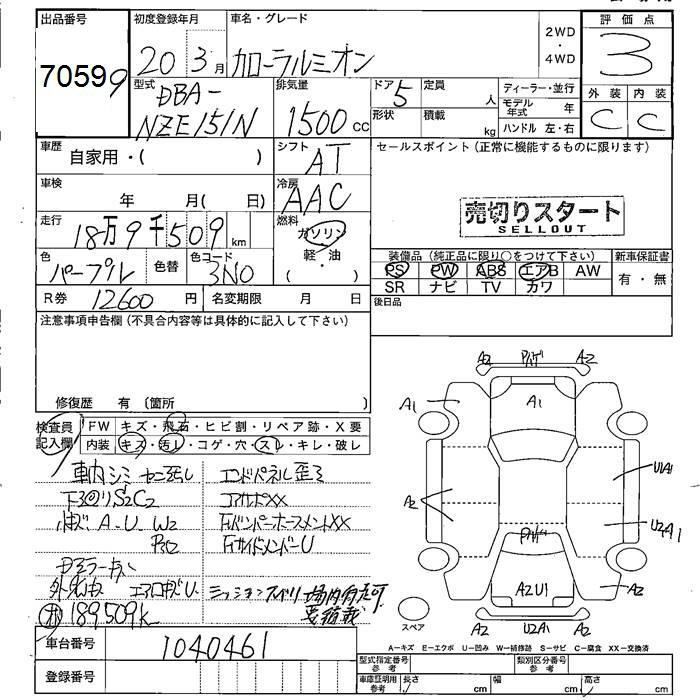 出品番号 初度登録年月 車名・グレード 2WD・4WD 評価点
70599 20年3月 カローラルミオン 3
型式 排気量 ドア 定員 ディーラー・並行 外装 内装
DBA- 5 人 モデル年式 年 C C
NZE151N 1500cc 形状 積載 kg ハンドル 左・右
車歴 自家用・( ) シフト AT セールスポイント(正常に機能するものに限ります)
車検 年 月( 日) 冷房 AAC
売切りスタート
SELLOUT
走行 18万9千509km 燃料 ガソリン・軽・油
色 パープル 色替 色コード 3N0
装備品(純正品に限り○をつけて下さい) 新車保証書
PS PW ABS エアB AW 有・無
SR ナビ TV カワ
R券 12600円 名変期限 月 日 後日品
注意事項申告欄(不具合内容等は具体的に記入して下さい)
修復歴 有(箇所 )
検査員記入欄 FW キズ・飛石・ヒビ割・リペア跡・X要
内装 キズ・汚レ・コゲ・穴・スレ・キレ・破レ
車内シミ エンドパネル歪ミ
下回りS2C2 コアサポXX
小キズ A-U W2
P3D2
ミッション
189509K
車台番号 1040461
登録番号
A2 A2
A1 A1
A2 U1A1
U2A1
A2U1 A2
スペア A2 U2A1 A2
A－キズ E－エクボ U－凹み W－補修跡 S－サビ C－腐食 XX－交換済
型式指定番号 参考 類別区分番号 参考
車庫証明用 参考 長さ cm 幅 cm 高さ cm